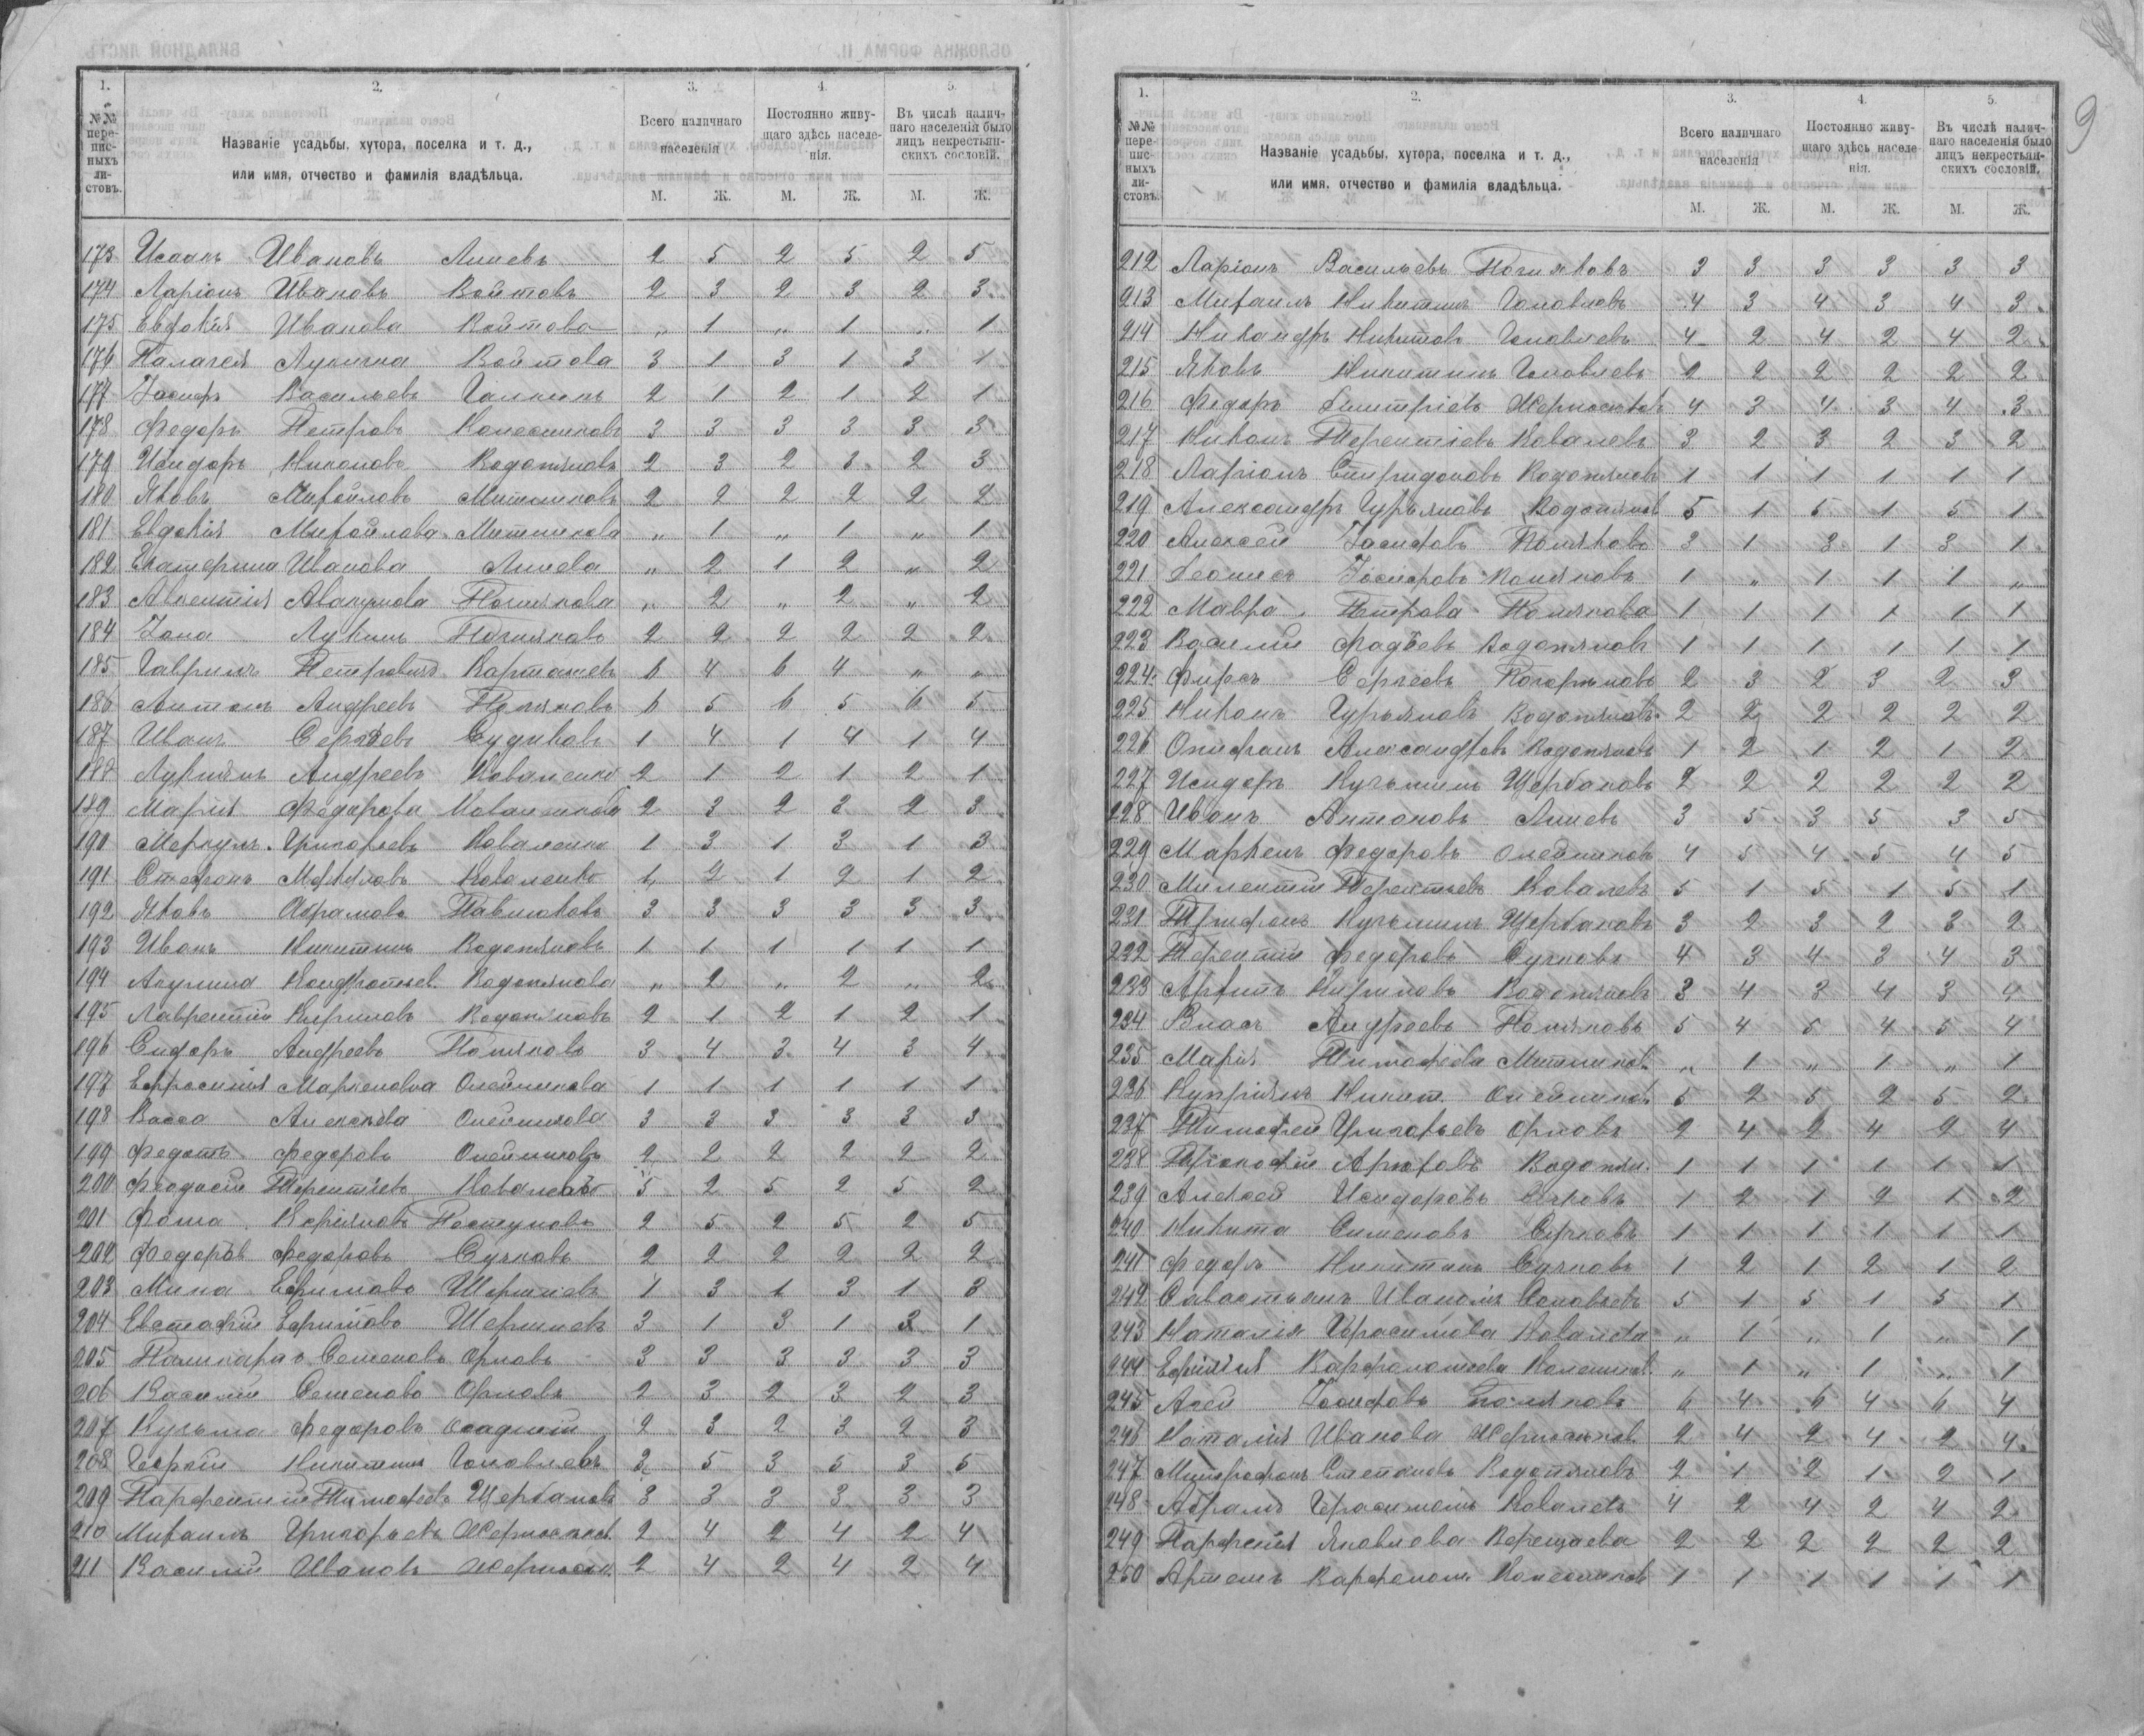 1. 2. 3. 4. 5.
№№ пере-пис-ныхъ ли-стовъ. Названіе усадьбы, хутора, поселка и т. д., или имя, отчество и фамилія владѣльца. Всего наличнаго населенія Постоянно живу-щаго здѣсь населе-нія. Въ числѣ налич-наго населенія было лицъ некрестьян-скихъ сословій.
М. Ж. М. Ж. М. Ж.
173 Исаакъ Ивановъ Линевъ 2 5 2 5 2 5
174 Ларіонъ Ивановъ Войтовъ 2 3 2 3 2 3
175 Евдокія Иванова Войтова „ 1 „ 1 „ 1
176 Палагея Лукична Войтова 3 1 3 1 3 1
177 Іосифъ Васильевъ Галкинъ 2 1 2 1 2 1
178 Федоръ Петровъ Колесниковъ 3 3 3 3 3 3
179 Исидоръ Никоновъ Водопяновъ 2 3 2 3 2 3
180 Яковъ Михайловъ Митниковъ 2 2 2 2 2 2
181 Евдокія Михайлова Митникова „ 1 „ 1 „ 1
182 Екатерина Иванова Линева „ 2 1 2 „ 2
183 Авкентія Авакумова Полякова „ 2 „ 2 „ 2
184 Іона Лукинъ Поляковъ 2 2 2 2 2 2
185 Гаврилъ Петровичъ Карташевъ 6 4 6 4 „ „
186 Антонъ Андреевъ Поляковъ 6 5 6 5 6 5
187 Иванъ Сергѣевъ Судиковъ 1 4 1 4 1 4
188 Лукіянъ Андреевъ Коваленко 2 1 2 1 2 1
189 Марія Федорова 2 3 2 3 2 3
190 Меркулъ Григорьевъ Коваленко 1 3 1 3 1 3
191 Степанъ Коваленко 1 2 1 2 1 2
192 Яковъ Абрамовъ Павлюковъ 3 3 3 3 3 3
193 Иванъ Никитинъ Водопяновъ 1 1 1 1 1 1
194 Акулина Кондратьев. Водопянова „ 2 „ 2 „ 2
195 Лаврентій Кириловъ Водопяновъ 2 1 2 1 2 1
196 Сидоръ Андреевъ Поляковъ 3 4 3 4 3 4
197 Ефросинія Маркеловна Олейникова 1 1 1 1 1 1
198 Васса Алексѣева Олейникова 3 3 3 3 3 3
199 Федотъ Федоровъ Олейниковъ 2 2 2 2 2 2
200 Феодосій Терентіевъ 5 2 5 2 5 2
201 Фома Кипріяновъ Пастуховъ 2 5 2 5 2 5
202 Федоръ Федоровъ Сучковъ 2 2 2 2 2 2
203 Мина Ефимовъ Шершневъ 1 3 1 3 1 3
204 Евстафій Ефимовъ Шершневъ 3 1 3 1 3 1
205 Поликарпъ Семеновъ Орловъ 3 3 3 3 3 3
206 Василій Семеновъ Орловъ 2 3 2 3 2 3
207 Кузьма Федоровъ Осадчій 2 3 2 3 2 3
208 Георгій Никитинъ Головлевъ 3 5 3 5 3 5
209 Парфентій Тимофеевъ Щербаковъ 3 3 3 3 3 3
210 Михаилъ Григорьевъ 2 4 2 4 2 4
211 Василій Ивановъ 2 4 2 4 2 4
9
1. 2. 3. 4. 5.
№№ пере-пис-ныхъ ли-стовъ. Названіе усадьбы, хутора, поселка и т. д., или имя, отчество и фамилія владѣльца. Всего наличнаго населенія Постоянно живу-щаго здѣсь населе-нія. Въ числѣ налич-наго населенія было лицъ некрестьян-скихъ сословій.
М. Ж. М. Ж. М. Ж.
212 Ларіонъ Васильевъ Поляковъ 3 3 3 3 3 3
213 Михаилъ Никитинъ Головлевъ 4 3 4 3 4 3
214 Никандръ Никитовъ Головлевъ 4 2 4 2 4 2
215 Яковъ Никитинъ Головлевъ 2 2 2 2 2 2
216 Федоръ Димитріевъ 4 3 4 3 4 3
217 Никонъ Терентіевъ Ковалевъ 3 2 3 2 3 2
218 Ларіонъ Спиридоновъ Водопяновъ 1 1 1 1 1 1
219 Александръ Гурьяновъ Водопянов 5 1 5 1 5 1
220 Алексей Іосифовъ Поляковъ 3 1 3 1 3 1
221 Іосифовъ Поляковъ 1 „ 1 1 1 „
222 Мавра Петрова Полякова 1 1 1 1 1 1
223 Василій Фадѣевъ Водопяновъ 1 1 1 1 1 1
224 Фирсъ Сергеевъ 2 3 2 3 2 3
225 Никонъ Гурьяновъ Водопяновъ 2 2 2 2 2 2
226 Онифанъ Александровъ Водопяновъ 1 2 1 2 1 2
227 Исидоръ Кузьминъ Щербаковъ 2 2 2 2 2 2
228 Иванъ Антоновъ Линевъ 3 5 3 5 3 5
229 Маркелъ Федоровъ Олейниковъ 4 5 4 5 4 5
230 Милентій Терентьевъ Ковалевъ 5 1 5 1 5 1
231 Трифонъ Кузьминъ Щербаковъ 3 2 3 2 3 2
232 Терентій Федоровъ Сучковъ 4 3 4 3 4 3
233 Архипъ Кириловъ Водопяновъ 3 4 3 4 3 4
234 Власъ Андреевъ Поляковъ 5 4 5 4 5 4
235 Марія Тимофеева Митников. „ 1 „ 1 „ 1
236 Купріянъ Никит. Олейников. 5 2 5 2 5 2
237 Тимофей Григорьевъ Орловъ 2 4 2 4 2 4
238 Прокофій Водопян. 1 1 1 1 1 1
239 Алексей Исидоровъ 1 2 1 2 1 2
240 Никита Симеоновъ 1 1 1 1 1 1
241 Федоръ Никитинъ Сучковъ 1 2 1 2 1 2
242 Савастьянъ Ивановъ Соловьевъ 5 1 5 1 5 1
243 Наталія Герасимова Ковалева „ 1 „ 1 „ 1
244 Варфоломеева „ 1 „ 1 „ 1
245 Іосифовъ Поляковъ 6 4 6 4 6 4
246 Наталія Иванова 2 4 2 4 2 4
247 Митрофанъ Степановъ Водопяновъ 2 1 2 1 2 1
248 Абрамъ Герасимовъ Ковалевъ 4 2 4 2 4 2
249 Парфенія Яковлева Верещаева 2 2 2 2 2 2
250 Артемъ Варфолом. Колесников 1 1 1 1 1 1